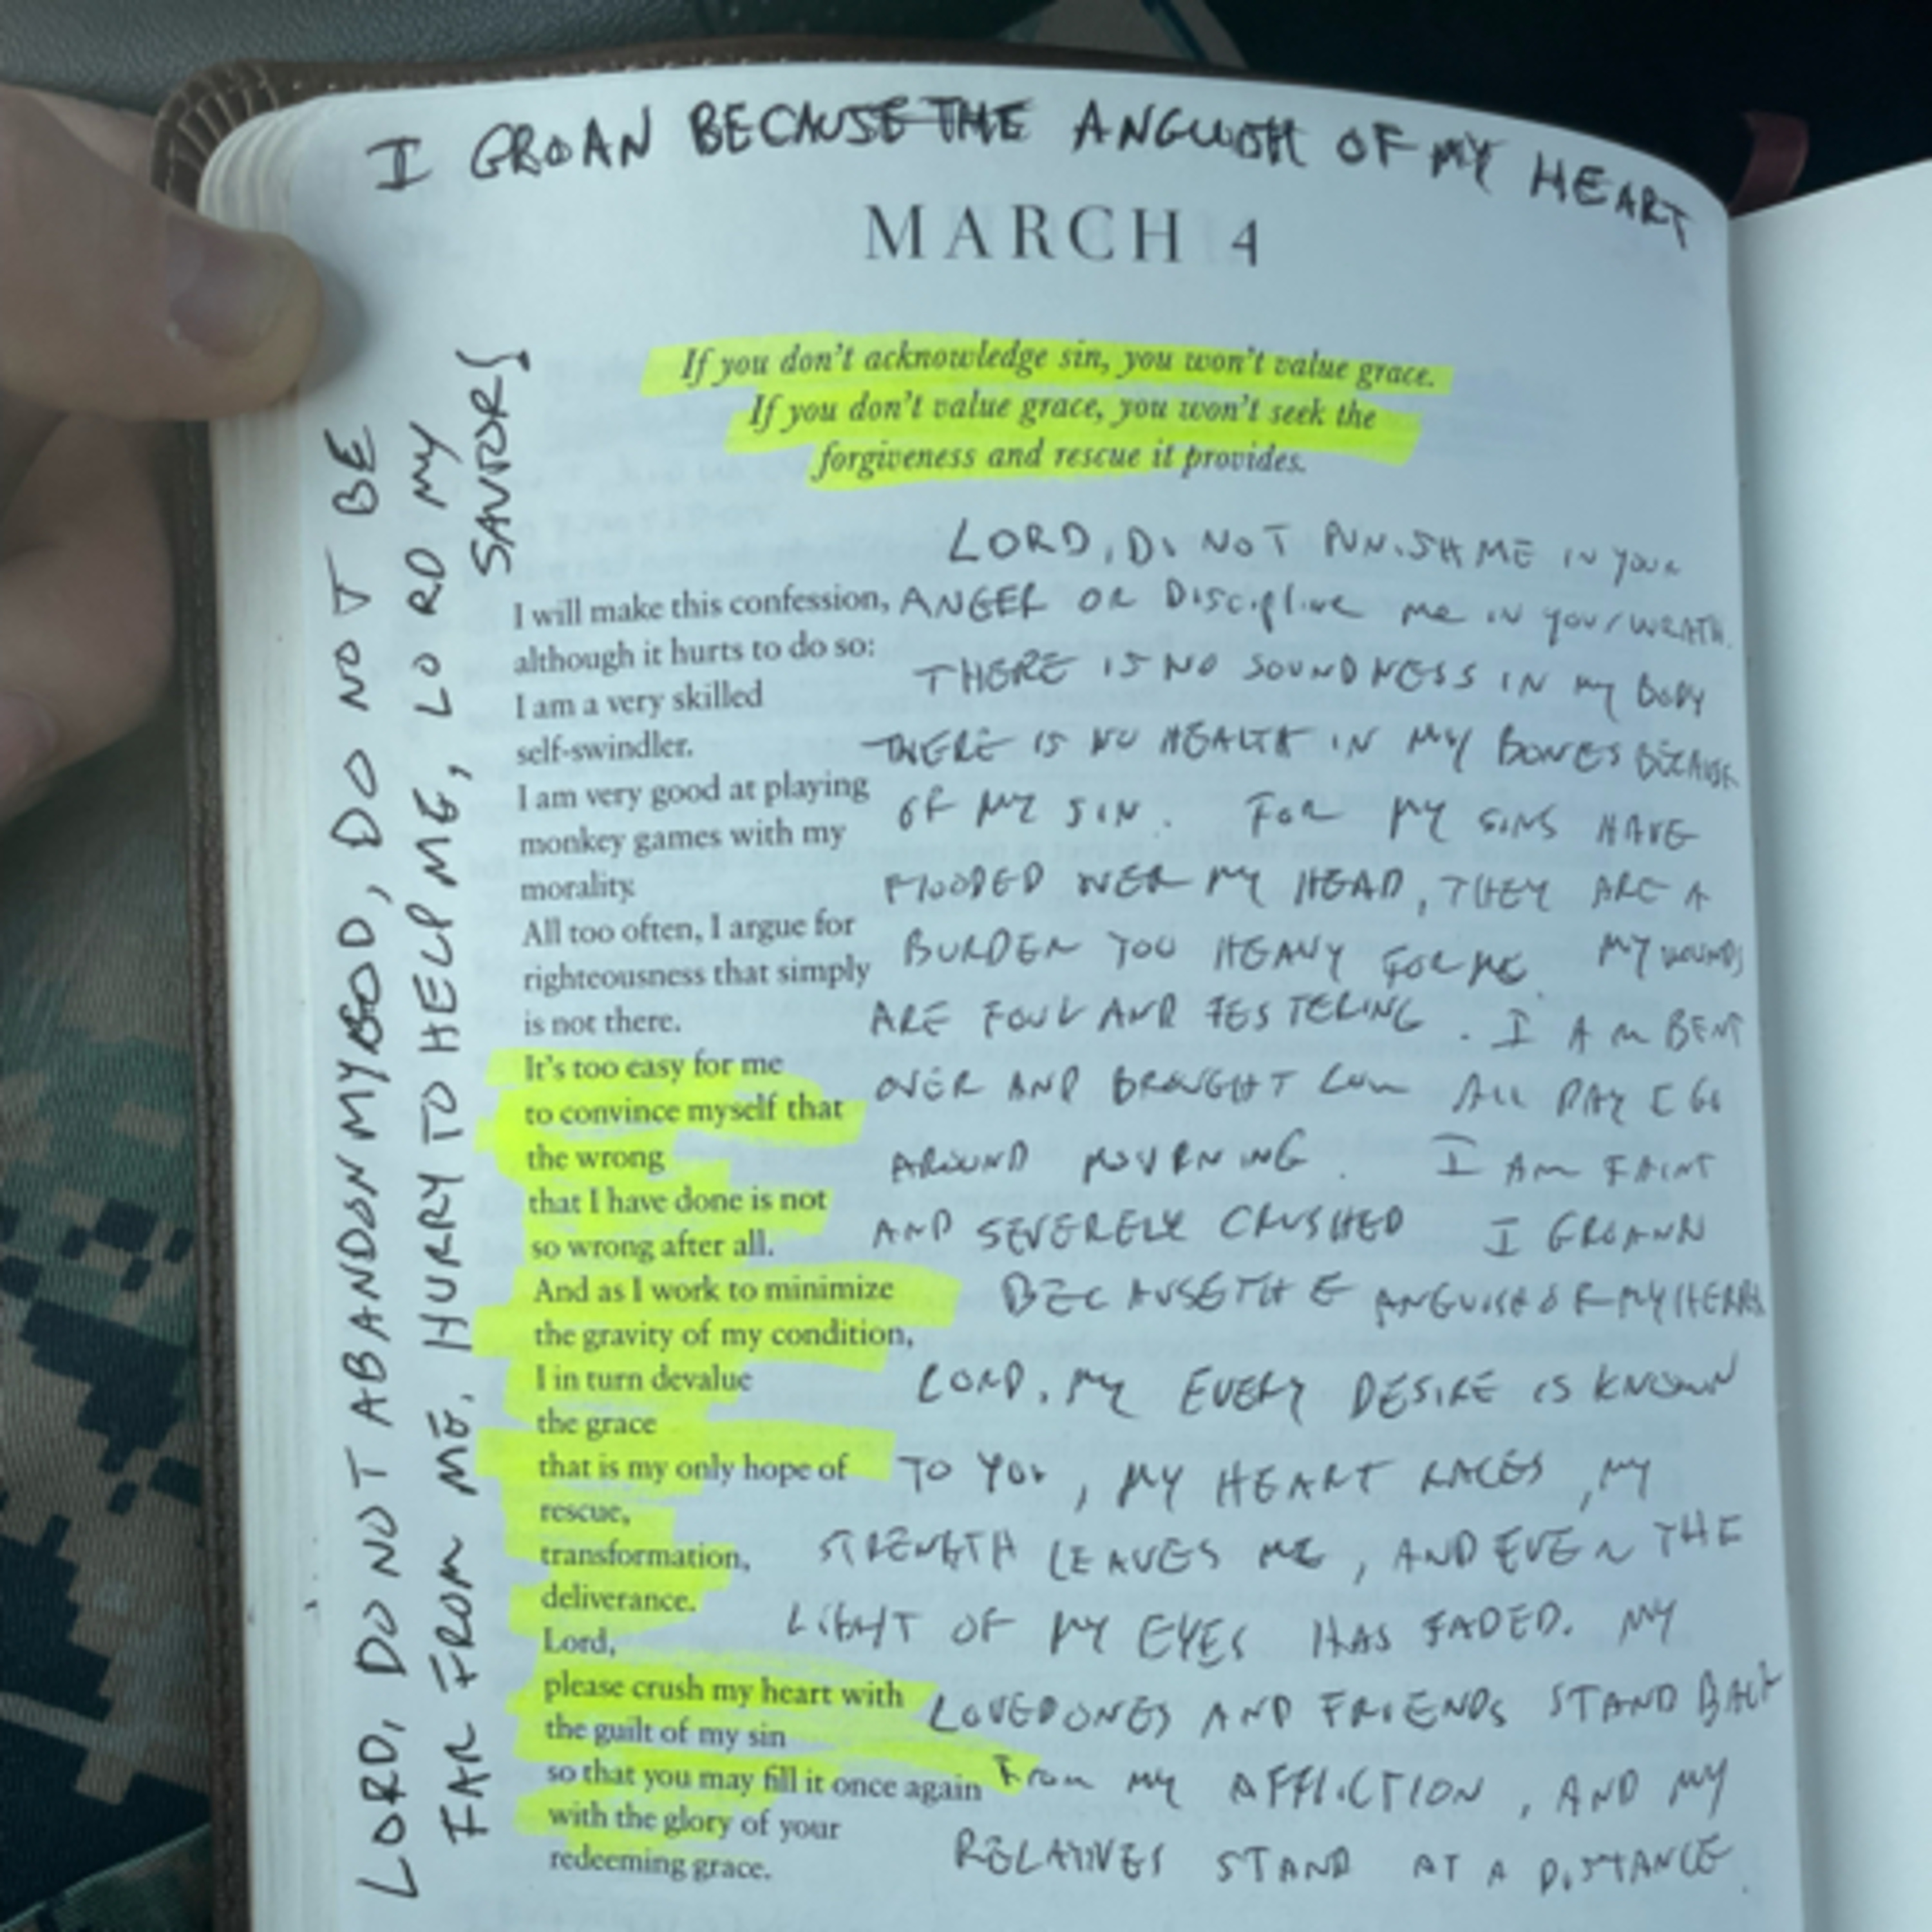 I GROAN BECAUSE THE ANGUISH OF MY HEART
MARCH 4
If you don't acknowledge sin, you won't value grace.
If you don't value grace, you won't seek the
forgiveness and rescue it provides.
I will make this confession,
although it hurts to do so:
I am a very skilled
self-swindler.
I am very good at playing
monkey games with my
morality.
All too often, I argue for
righteousness that simply
is not there.
It's too easy for me
to convince myself that
the wrong
that I have done is not
so wrong after all.
And as I work to minimize
the gravity of my condition,
I in turn devalue
the grace
that is my only hope of
rescue,
transformation,
deliverance.
Lord,
please crush my heart with
the guilt of my sin
so that you may fill it once again
with the glory of your
redeeming grace.
LORD, DO NOT PUNISH ME IN YOUR
ANGER OR Discipline me IN your WRATH.
THERE IS NO SOUNDNESS IN my BODY
THERE IS NO HEALTH IN MY BONES BECAUSE
OF MY SIN. FOR MY SINS HAVE
FLOODED OVER MY HEAD, THEY ARE A
BURDEN TOO HEAVY FOR ME. MY WOUNDS
ARE FOUL AND FESTERING. I AM BENT
OVER AND BROUGHT LOW ALL DAY I GO
AROUND MOURNING. I AM FAINT
AND SEVERELY CRUSHED I GROANN
BECAUSE THE ANGUISH OF MY HEART
LORD, My EVERY DESIRE IS KNOWN
TO YOU, MY HEART RACES, MY
STRENGTH LEAVES ME, AND EVEN THE
LIGHT OF MY EYES HAS FADED. MY
LOVED ONES AND FRIENDS STAND BACK
From MY AFFLICTION, AND MY
RELATIVES STAND AT A DISTANCE.
LORD, DO NOT ABANDON MY GOD, DO NOT BE
FAR FROM ME. HURRY TO HELP ME, LORD MY
SAVIOR